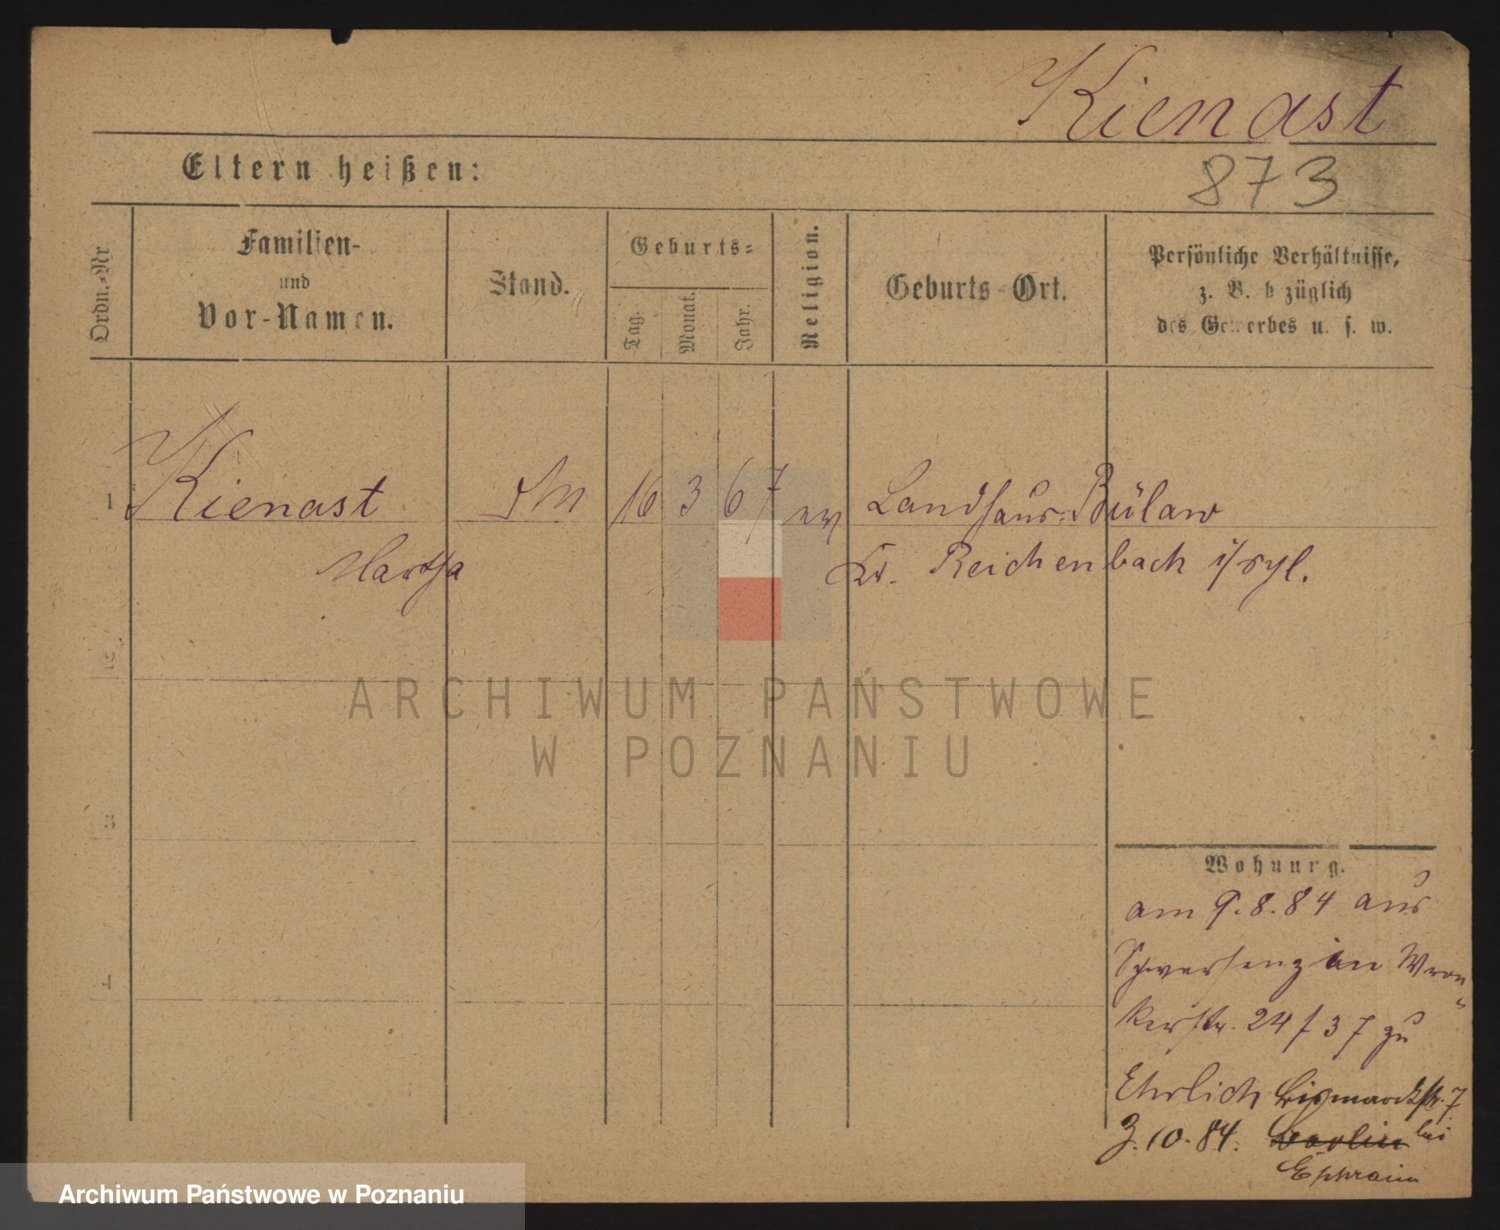 Kienast
Eltern heißen:
873
Ordn.-Nr
Familien-
und
Vor-Namen.
Stand.
Geburts-
Tag.
Monat.
Jahr.
Religion.
Geburts-Ort.
Persönliche Verhältnisse,
z. B. bezüglich
des Gewerbes u. s. w.
1 Kienast 16 3 67 ev Landhaus-Bülaw
Martha Kr. Reichenbach i/Schl.
2
ARCHIWUM PAŃSTWOWE
W POZNANIU
3
Wohnung.
am 9.8.84 aus
Schwersenz in Wron-
4
kerstr. 24/37 zu
Ehrlich Bismarckstr. 7
3.10.84. Berlin bei
Ephraim
Archiwum Państwowe w Poznaniu